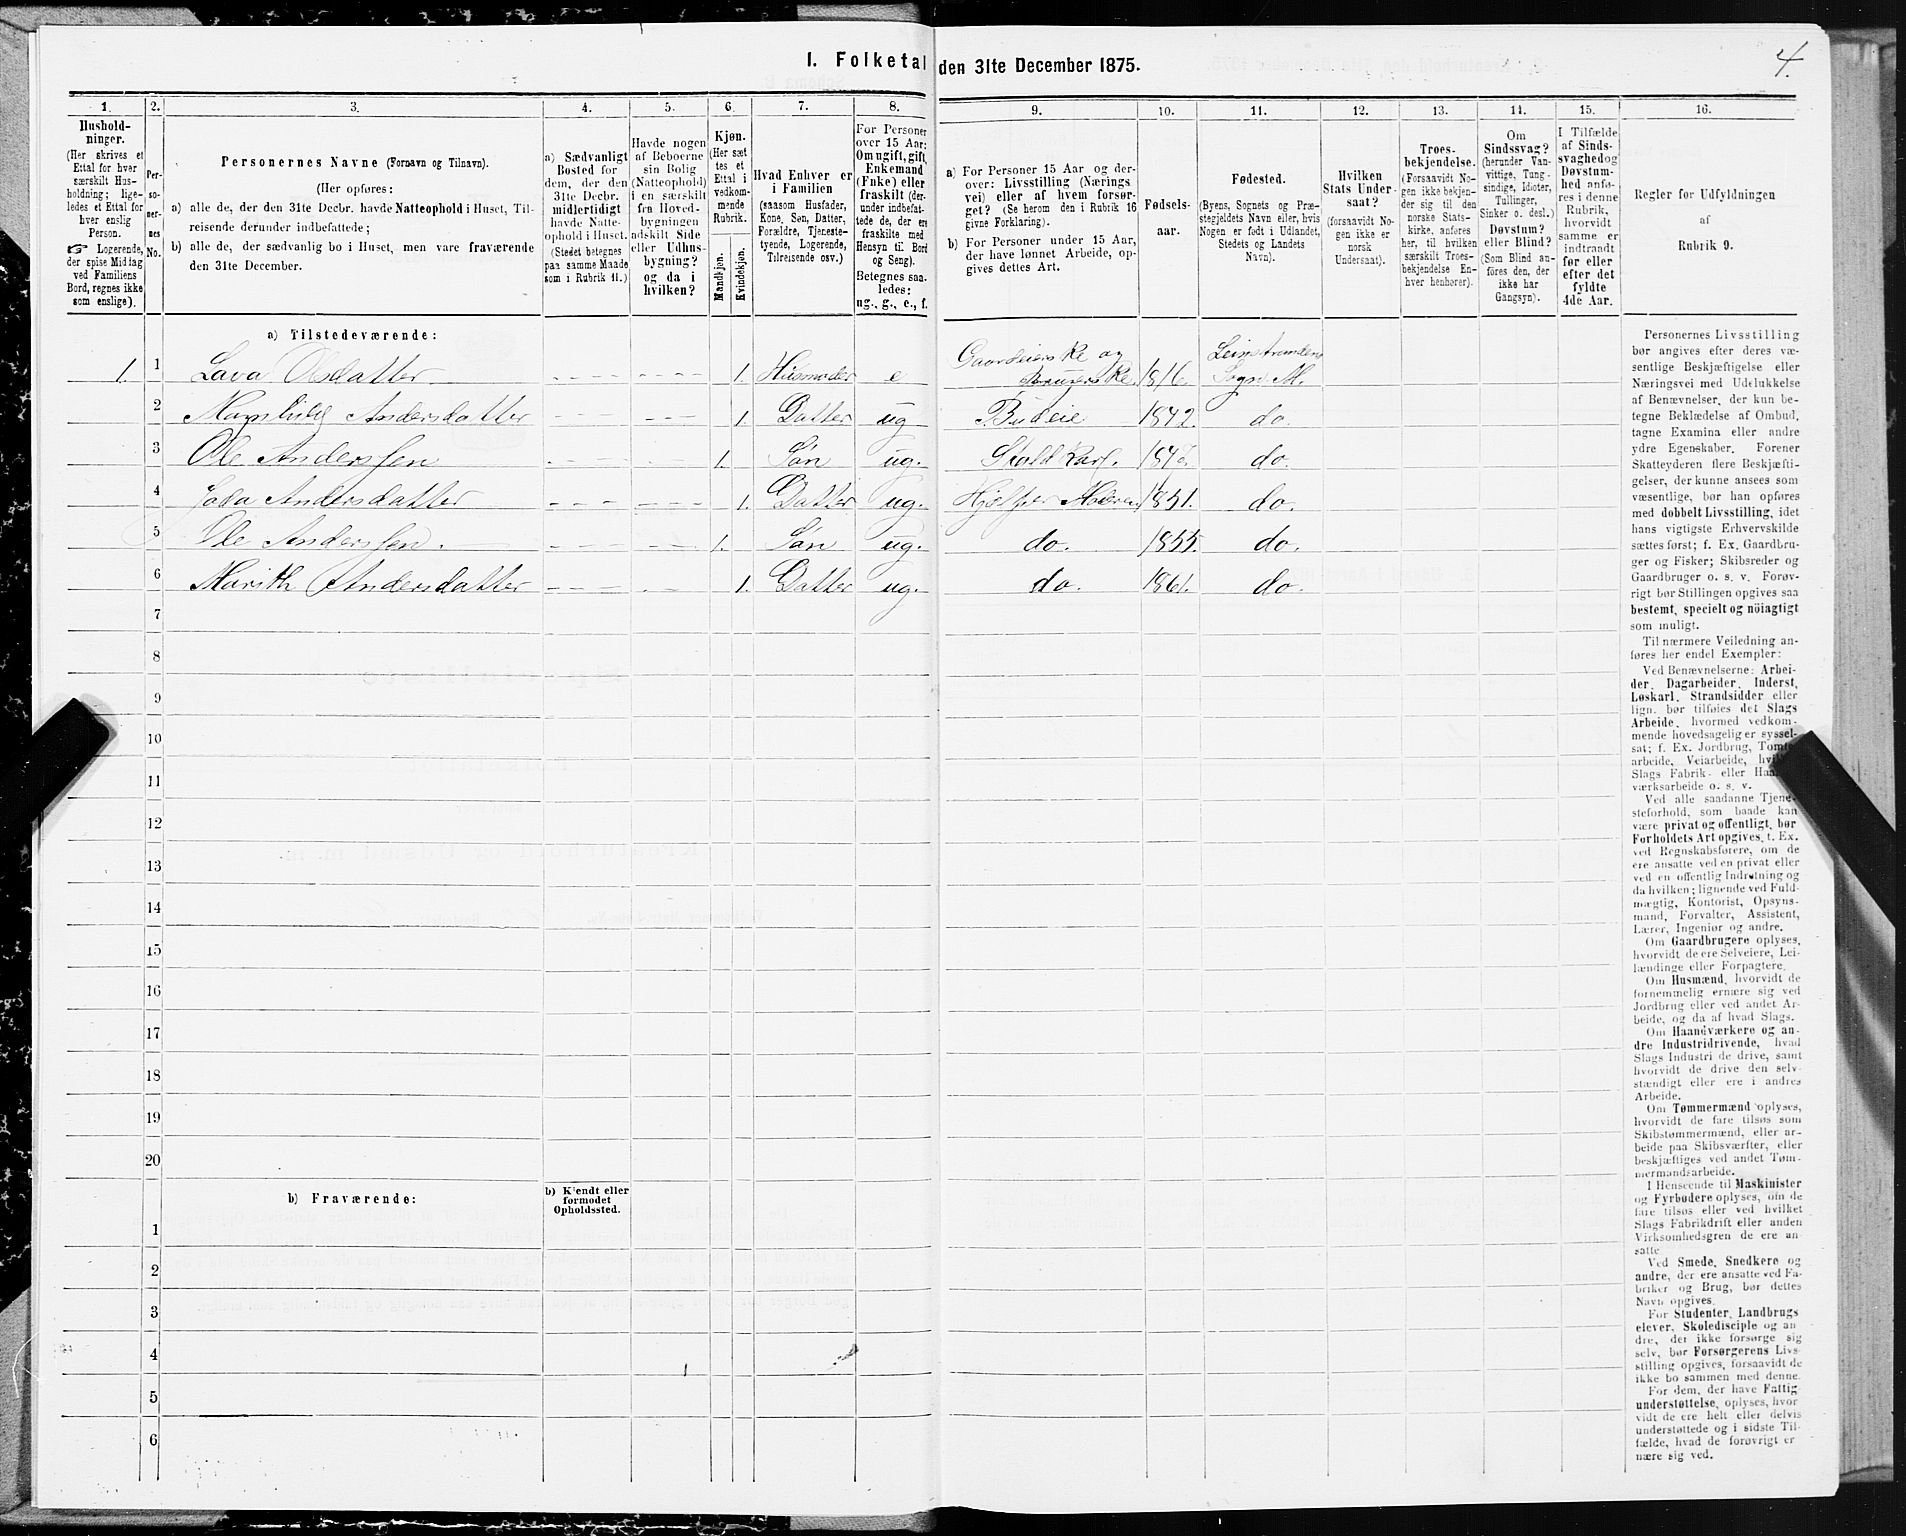 I. Folketal den 31te December 1875.
4.
1.
Hushold-
ninger.
(Her skrives et
Ettal for hver
særskilt Hus-
holdning; lige-
ledes et Ettal for
hver enslig
Person.
☞ Logerende,
der spise Middag
ved Familiens
Bord, regnes ikke
som enslige).
2.
Per-
so-
ner-
nes
No.
3.
Personernes Navne (Fornavn og Tilnavn).
(Her opføres:
a) alle de, der den 31te Decbr. havde Natteophold i Huset, Til-
reisende derunder indbefattede;
b) alle de, der sædvanlig bo i Huset, men vare fraværende
den 31te December.
4.
a) Sædvanligt
Bosted for
dem, der den
31te Decbr.
midlertidigt
havde Natte-
ophold i Huset.
(Stedet betegnes
paa samme Maade
som i Rubrik 11.)
5.
Havde nogen
af Beboerne
sin Bolig
(Natteophold)
i en særskilt
fra Hoved-
bygningen
adskilt Side
eller Udhus-
bygning?
og da i
hvilken?
6.
Kjøn.
(Her sæt
tes et
Ettal i
vedkom-
mende
Rubrik.
Mandkjøn.
Kvindekjøn.
7.
Hvad Enhver er
i Familien
(saasom Husfader,
Kone, Søn, Datter,
Forældre, Tjeneste-
tyende, Logerende,
Tilreisende osv.)
8.
For Personer
over 15 Aar:
Om ugift, gift,
Enkemand
(Enke) eller
fraskilt (der-
under indbefat-
tede de, der ere
fraskilte med
Hensyn til Bord
og Seng).
Betegnes saa-
ledes:
ug., g., e., f.
9.
a) For Personer 15 Aar og der-
over: Livsstilling (Nærings
vei) eller af hvem forsør-
get? (Se herom den i Rubrik 16
givne Forklaring).
b) For Personer under 15 Aar,
der have lønnet Arbeide, op-
gives dettes Art.
10.
Fødsels-
aar.
11.
Fødested.
(Byens, Sognets og Præ-
stegjeldets Navn eller, hvis
Nogen er født i Udlandet,
Stedets og Landets
Navn).
12.
Hvilken
Stats Under-
saat?
(forsaavidt No-
gen ikke er
norsk
Undersaat).
13.
Troes-
bekjendelse.
(Forsaavidt No-
gen ikke bekjen-
der sig til den
norske Stats-
kirke, anføres
her, til hvilken
særskilt Troes-
bekjendelse En-
hver henhører).
14.
Om
Sindssvag?
(herunder Van-
vittige, Tung-
sindige, Idioter,
Tullinger,
Sinker o. desl.)
Døvstum?
eller Blind?
(Som Blind an-
føres den, der
ikke har
Gangsyn).
15.
I Tilfælde
af Sinds-
svaghed og
Døvstum-
hed anfø-
res i denne
Rubrik,
hvorvidt
samme er
indtraadt
før eller
efter det
fyldte
4de Aar.
16.
Regler for Udfyldningen
af
Rubrik 9.
a) Tilstedeværende:
1. 1 Lava Olsdatter - - - - - - - 1. Husmoder e Gaardeierske og Brugerske. 1816. Leinstrandens Sogn M.
2 Andersdatter - - - - - - 1. Datter ug Budeie 1842. do.
3 Ole Anderssen - - - - - - 1. Søn ug. Stald karl. do.
4 Andersdatter - - - - - - 1. Datter ug. Hjelper Moderen 1851. do.
5 Ole Anderssen. - - - - - 1. Søn ug. do. 1855. do.
6 Marith Andersdatter - - - - - 1. Datter ug. do. 1861. do.
7
8
9
10
11
12
13
14
15
16
17
18
19
20
b) Fraværende:
b) Kjendt eller
formodet
Opholdssted.
1
2
3
4
5
6
Personernes Livsstilling
bør angives efter deres væ-
sentlige Beskjæftigelse eller
Næringsvei med Udelukkelse
af Benævnelser, der kun be-
tegne Beklædelse af Ombud,
tagne Examina eller andre
ydre Egenskaber. Forener
Skatteyderen flere Beskjæfti-
gelser, der kunne ansees som
væsentlige, bør han opføres
med dobbelt Livsstilling, idet
hans vigtigste Erhvervskilde
sættes først; f. Ex. Gaardbru-
ger og Fisker; Skibsreder og
Gaardbruger o. s. v. Forøv-
rigt bør Stillingen opgives saa
bestemt, specielt og nöiagtigt
som muligt.
Til nærmere Veiledning an-
føres her endel Exempler:
Ved Benævnelserne: Arbei-
der, Dagarbeider, Inderst,
Løskarl, Strandsidder eller
lign. bør tilføies det Slags
Arbeide, hvormed vedkom-
mende hovedsagelig er syssel-
sat; f. Ex. Jordbrug, Tomte-
arbeide, Veiarbeide,
Slags Fabrik- eller
værksarbeide o. s. v.
Ved alle saadanne Tjene-
steforhold, som baade kan
være privat og offentligt, bør
Forholdets Art opgives, t. Ex.
ved Regnskabsførere, om de
ere ansatte ved en privat eller
ved en offentlig Indretning og
da hvilken; lignende ved Fuld-
mægtig, Kontorist, Opsyns-
mand, Forvalter, Assistent,
Lærer, Ingeniør og andre.
Om Gaardbrugere oplyses,
hvorvidt de ere Selveiere, Lei-
lændinge eller Forpagtere.
Om Husmænd, hvorvidt de
fornemmelig ernære sig ved
Jordbrug eller ved andet Ar-
beide, og da af hvad Slags.
Om Haandværkere og an-
dre Industridrivende, hvad
Slags Industri de drive, samt
hvorvidt de drive den selv-
stændigt eller ere i andres
Arbeide.
Om Tømmermænd oplyses,
hvorvidt de fare tilsøs som
Skibstømmermænd, eller ar-
beide paa Skibsværfter, eller
beskjæftiges ved andet Tøm-
mermandsarbeide.
I Henseende til Maskinister
og Fyrbødere oplyses, om de
fare tilsøs eller ved hvilket
Slags Fabrikdrift eller anden
Virksomhedsgren de ere an-
satte
Ved Smede, Snedkere og
andre, der ere ansatte ved Fa-
briker og Brug, bør dettes
Navn opgives.
For Studenter, Landbrugs
elever, Skoledisciple og an
dre, der ikke forsørge sig
selv, bør Forsørgerens Livs-
stilling opgives, forsaavidt de
ikke bo sammen med denne.
For dem, der have Fattig
understøttelse, oplyses, hvor
vidt de ere helt eller delvis
understøttede og i sidste Til-
fælde, hvad de forøvrigt er
nære sig ved.